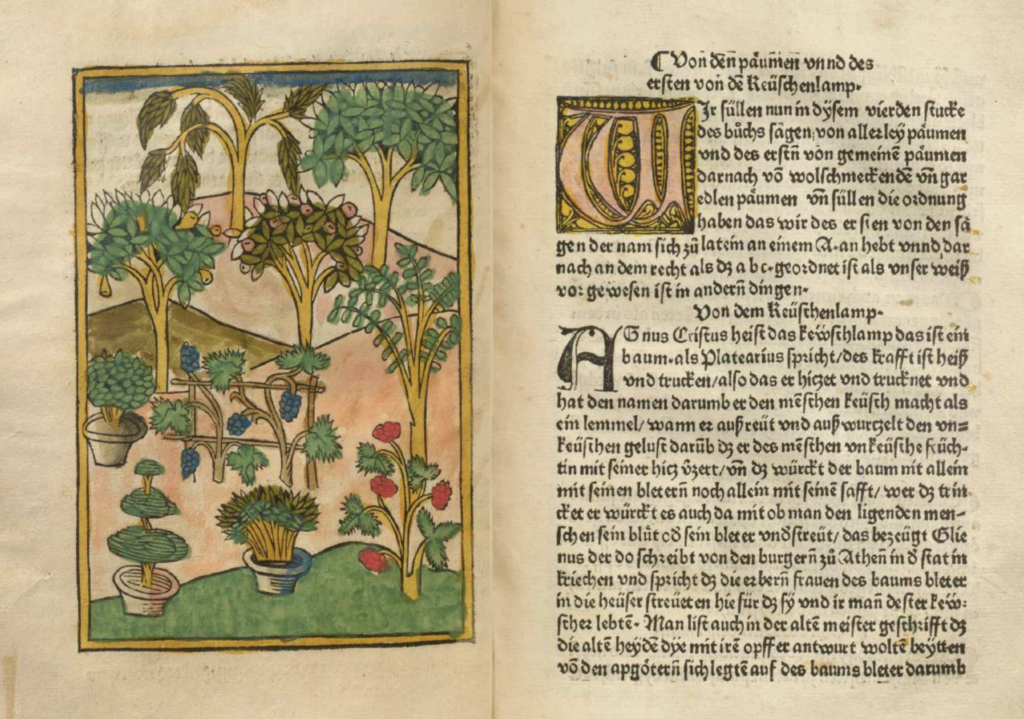 Von deñ päumen vnnd des
ersten von dē Keüschenlamp.
WJr süllen nun in dÿsem vierden stucke
des bůchs sagen, von allerley päumen
vnd des erstñ von gemeinē päumen
darnach vō wolschmeckendē vñ gar
edlen päumen vñ süllen die ordnung
haben das wir des ersten von den sa
gen der nam sich zů latein an einem A. an hebt vnnd dar
nach an dem recht als dz a bc. geordnet ist als vnser weiß
vor gewesen ist in anderñ dingen.
Von dem Keüschenlamp.
AGnus Cristus heist das kewschlamp das ist ein
baum. als Platearius spricht/des krafft ist heiß
vnd trucken/also das er hiczet vnd trucknet vnd
hat den namen darumb er den mēschen keüsch macht als
ein lemmel/wann er außreüt vnd außwurczelt den vn⸗
keüschen gelust darūb dz er des mēschen vnkeüsche früch⸗
tin mit seiner hicz v̄zert/vñ dz würckt der baum nit allein
mit seinen bleterñ noch allein mit seinē safft/wer dz trin
cket er würckt es auch da mit ob man den ligenden men⸗
schen sein blüt oď sein bleter vnďstreüt/das bezeügt Glie
nus der do schreibt von den burgerñ zů Atheñ in ď stat in
kriechen vnd spricht dz die erberñ frauen des baums bleter
in die heüser streüeten hie für dz sy vnd ir mañ dester kew⸗
scher lebtē. Man list auch in der altē meister geschrifft dz
die altē heydē dye mit irē opffer antwurt woltē beytten
vō den apgöterñ sich legtē auf des baums bleter darumb